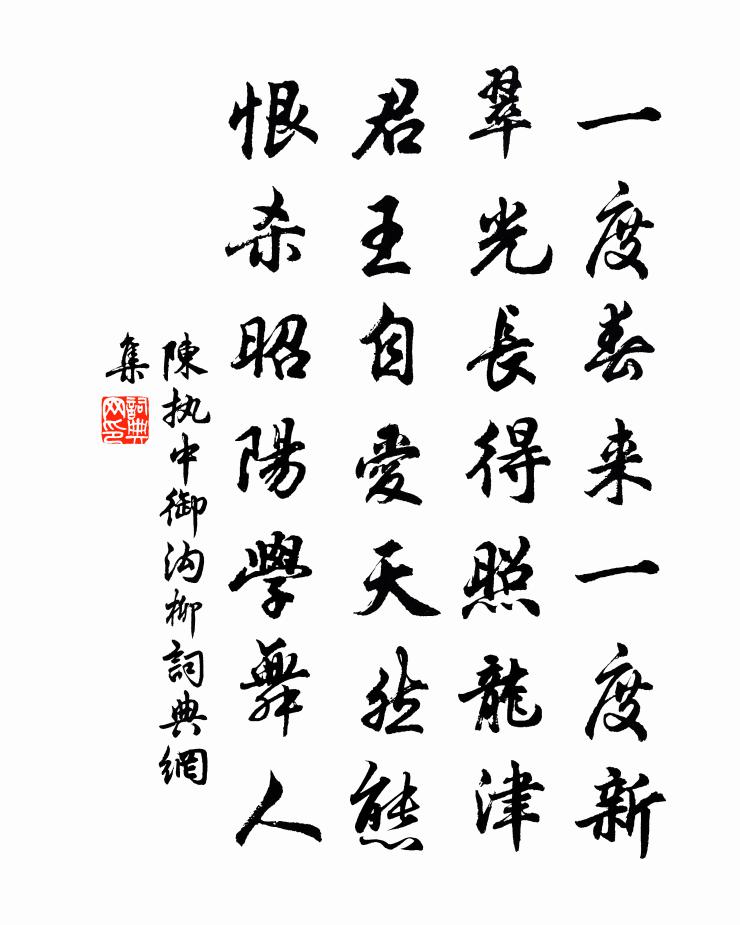 一度春来一度新
翠光長得照龍津
君王自愛天然態
恨杀昭陽學舞人
陳执中御沟柳詞典網
集
詞典
网印